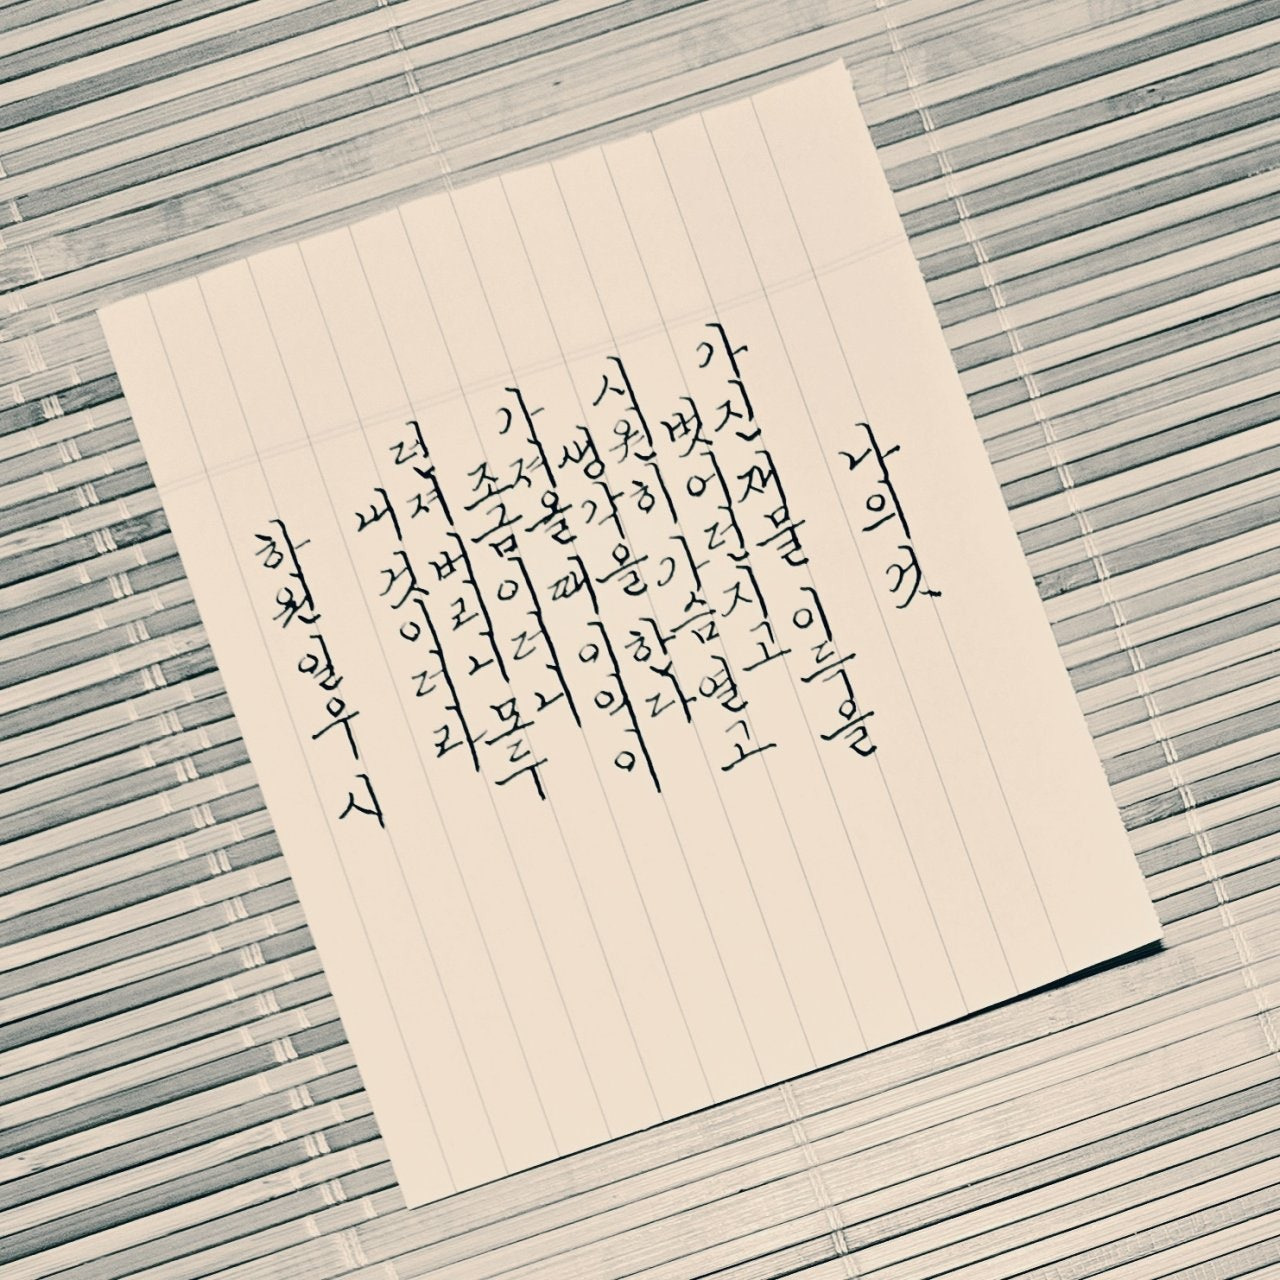 나의 것
가진 재물 이득을
벗어 던지고
시원히 가슴 열고
생각을 한다
가져올 때 이익이
조금이더니
던져 버리니 모두
내 것이더라
하원 일우 시